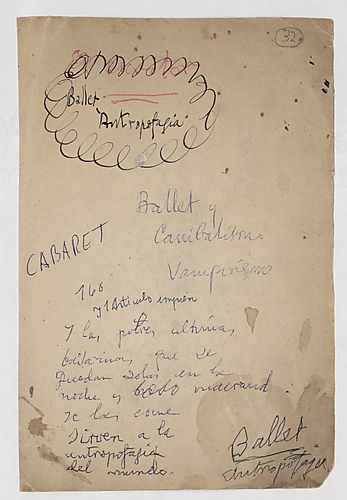 32
Ballet
Antropofagia
Ballet y
Canibalismo
Vampirismo
CABARET
160
y 1 Articulo
Y las pobres ultimas
bailarinas que se
quedan solas en la
noche y
se las come
Sirven a la
antropofagia
del mundo.
Ballet
Antropofagia